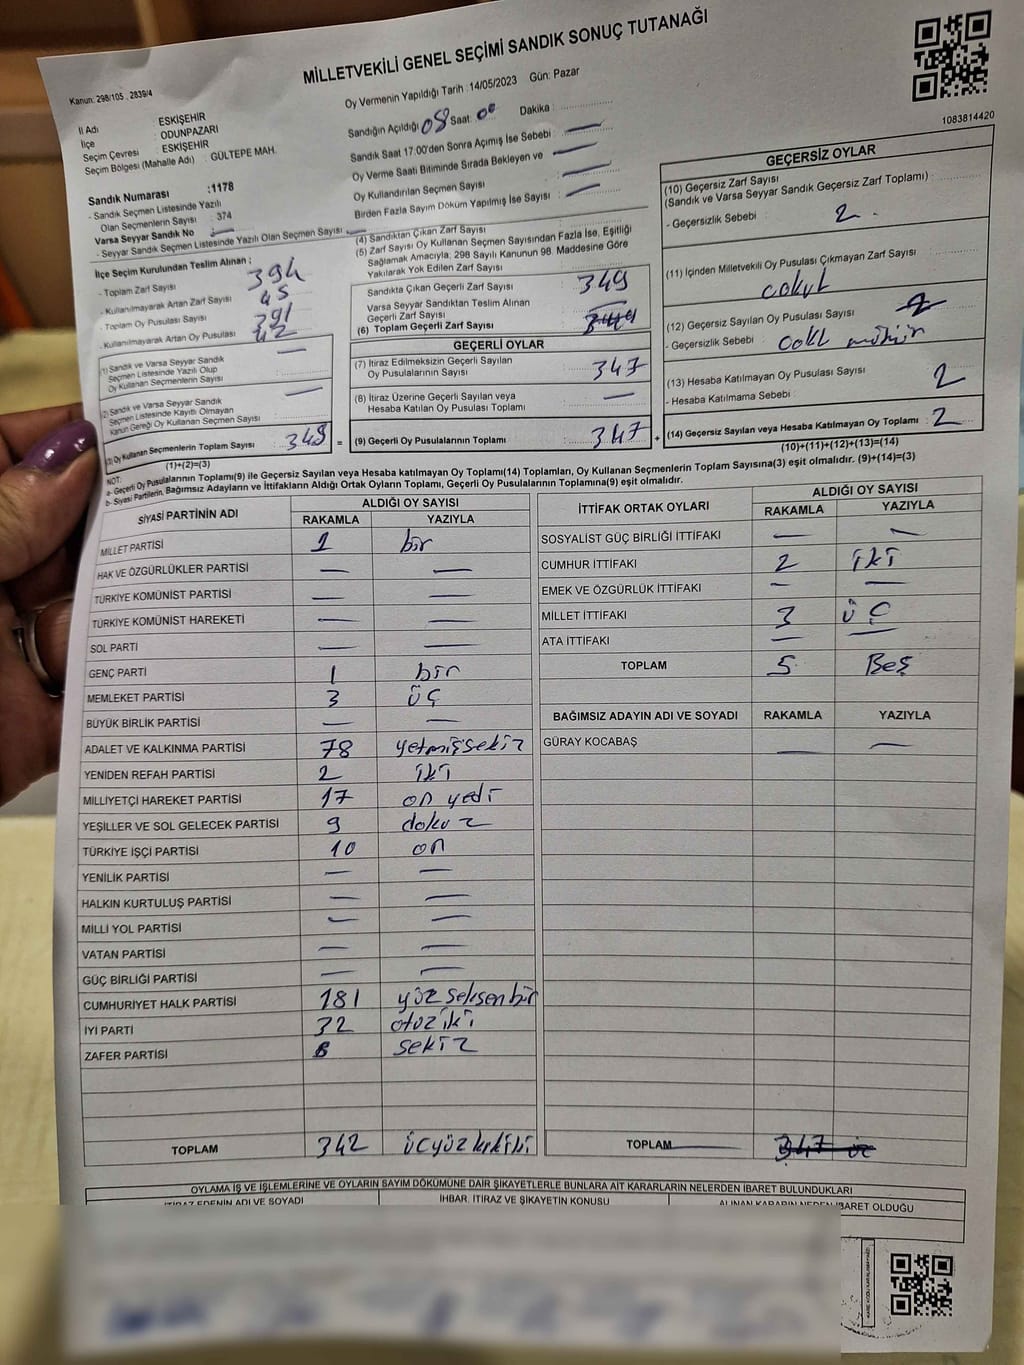 MİLLETVEKİLİ GENEL SEÇİMİ SANDIK SONUÇ TUTANAĞI
Kanun: 298/105, 2839/4
1083814420
İl Adı : ESKİŞEHİR
İlçe : ODUNPAZARI
Seçim Çevresi : ESKİŞEHİR
Seçim Bölgesi (Mahalle Adı) : GÜLTEPE MAH.
Sandık Numarası :1178
- Sandık Seçmen Listesinde Yazılı
Olan Seçmenlerin Sayısı : 374
Varsa Seyyar Sandık No —
- Seyyar Sandık Seçmen Listesinde Yazılı Olan Seçmen Sayısı : —
Oy Vermenin Yapıldığı Tarih :14/05/2023 Gün: Pazar
Sandığın Açıldığı 08 Saat: 00 Dakika :
Sandık Saat 17:00'den Sonra Açımış İse Sebebi : —
Oy Verme Saati Bitiminde Sırada Bekleyen ve
Oy Kullandırılan Seçmen Sayısı : —
Birden Fazla Sayım Döküm Yapılmış İse Sayısı : —
İlçe Seçim Kurulundan Teslim Alınan :
- Toplam Zarf Sayısı : 394
- Kullanılmayarak Artan Zarf Sayısı : 45
- Toplam Oy Pusulası Sayısı : 391
- Kullanılmayarak Artan Oy Pusulası : 42
(1) Sandık ve Varsa Seyyar Sandık
Seçmen Listesinde Yazılı Olup
Oy Kullanan Seçmenlerin Sayısı : —
(2) Sandık ve Varsa Seyyar Sandık
Seçmen Listesinde Kayıtlı Olmayan
Kanun Gereği Oy Kullanan Seçmen Sayısı : —
(3) Oy Kullanan Seçmenlerin Toplam Sayısı : 349 =
(1)+(2)=(3)
(4) Sandıktan Çıkan Zarf Sayısı :
(5) Zarf Sayısı Oy Kullanan Seçmen Sayısından Fazla İse, Eşitliği
Sağlamak Amacıyla, 298 Sayılı Kanunun 98. Maddesine Göre
Yakılarak Yok Edilen Zarf Sayısı :
Sandıkta Çıkan Geçerli Zarf Sayısı : 349
Varsa Seyyar Sandıktan Teslim Alınan
Geçerli Zarf Sayısı : —
(6) Toplam Geçerli Zarf Sayısı : 349
GEÇERLİ OYLAR
(7) İtiraz Edilmeksizin Geçerli Sayılan
Oy Pusulalarının Sayısı : 347
(8) İtiraz Üzerine Geçerli Sayılan veya
Hesaba Katılan Oy Pusulası Toplamı : —
(9) Geçerli Oy Pusulalarının Toplamı : 347 +
GEÇERSİZ OYLAR
(10) Geçersiz Zarf Sayısı
(Sandık ve Varsa Seyyar Sandık Geçersiz Zarf Toplamı) :
- Geçersizlik Sebebi : 2 .
(11) İçinden Milletvekili Oy Pusulası Çıkmayan Zarf Sayısı :
(12) Geçersiz Sayılan Oy Pusulası Sayısı : 2
- Geçersizlik Sebebi : mühür
(13) Hesaba Katılmayan Oy Pusulası Sayısı : 2
- Hesaba Katılmama Sebebi :
(14) Geçersiz Sayılan veya Hesaba Katılmayan Oy Toplamı : 2
(10)+(11)+(12)+(13)=(14)
NOT:
a- Geçerli Oy Pusulalarının Toplamı(9) ile Geçersiz Sayılan veya Hesaba katılmayan Oy Toplamı(14) Toplamları, Oy Kullanan Seçmenlerin Toplam Sayısına(3) eşit olmalıdır. (9)+(14)=(3)
b- Siyasi Partilerin, Bağımsız Adayların ve İttifakların Aldığı Ortak Oyların Toplamı, Geçerli Oy Pusulalarının Toplamına(9) eşit olmalıdır.
SİYASİ PARTİNİN ADI ALDIĞI OY SAYISI
RAKAMLA YAZIYLA
MİLLET PARTİSİ 1 bir
HAK VE ÖZGÜRLÜKLER PARTİSİ — —
TÜRKİYE KOMÜNİST PARTİSİ — —
TÜRKİYE KOMÜNİST HAREKETİ — —
SOL PARTİ — —
GENÇ PARTİ 1 bir
MEMLEKET PARTİSİ 3 üç
BÜYÜK BİRLİK PARTİSİ — —
ADALET VE KALKINMA PARTİSİ 78 yetmişsekiz
YENİDEN REFAH PARTİSİ 2 iki
MİLLİYETÇİ HAREKET PARTİSİ 17 on yedi
YEŞİLLER VE SOL GELECEK PARTİSİ 9 dokuz
TÜRKİYE İŞÇİ PARTİSİ 10 on
YENİLİK PARTİSİ — —
HALKIN KURTULUŞ PARTİSİ — —
MİLLİ YOL PARTİSİ — —
VATAN PARTİSİ — —
GÜÇ BİRLİĞİ PARTİSİ — —
CUMHURİYET HALK PARTİSİ 181 yüz seksen bir
İYİ PARTİ 32 otuz iki
ZAFER PARTİSİ 8 sekiz
TOPLAM 342 üçyüz kırk iki
İTTİFAK ORTAK OYLARI ALDIĞI OY SAYISI
RAKAMLA YAZIYLA
SOSYALİST GÜÇ BİRLİĞİ İTTİFAKI — —
CUMHUR İTTİFAKI 2 iki
EMEK VE ÖZGÜRLÜK İTTİFAKI — —
MİLLET İTTİFAKI 3 üÇ
ATA İTTİFAKI — —
TOPLAM 5 Beş
BAĞIMSIZ ADAYIN ADI VE SOYADI RAKAMLA YAZIYLA
GÜRAY KOCABAŞ — —
TOPLAM 347 üç
OYLAMA İŞ VE İŞLEMLERİNE VE OYLARIN SAYIM DÖKÜMÜNE DAİR ŞİKAYETLERLE BUNLARA AİT KARARLARIN NELERDEN İBARET BULUNDUKLARI
İTİRAZ EDENİN ADI VE SOYADI İHBAR, İTİRAZ VE ŞİKAYETİN KONUSU ALINAN KARARIN NEDEN İBARET OLDUĞU